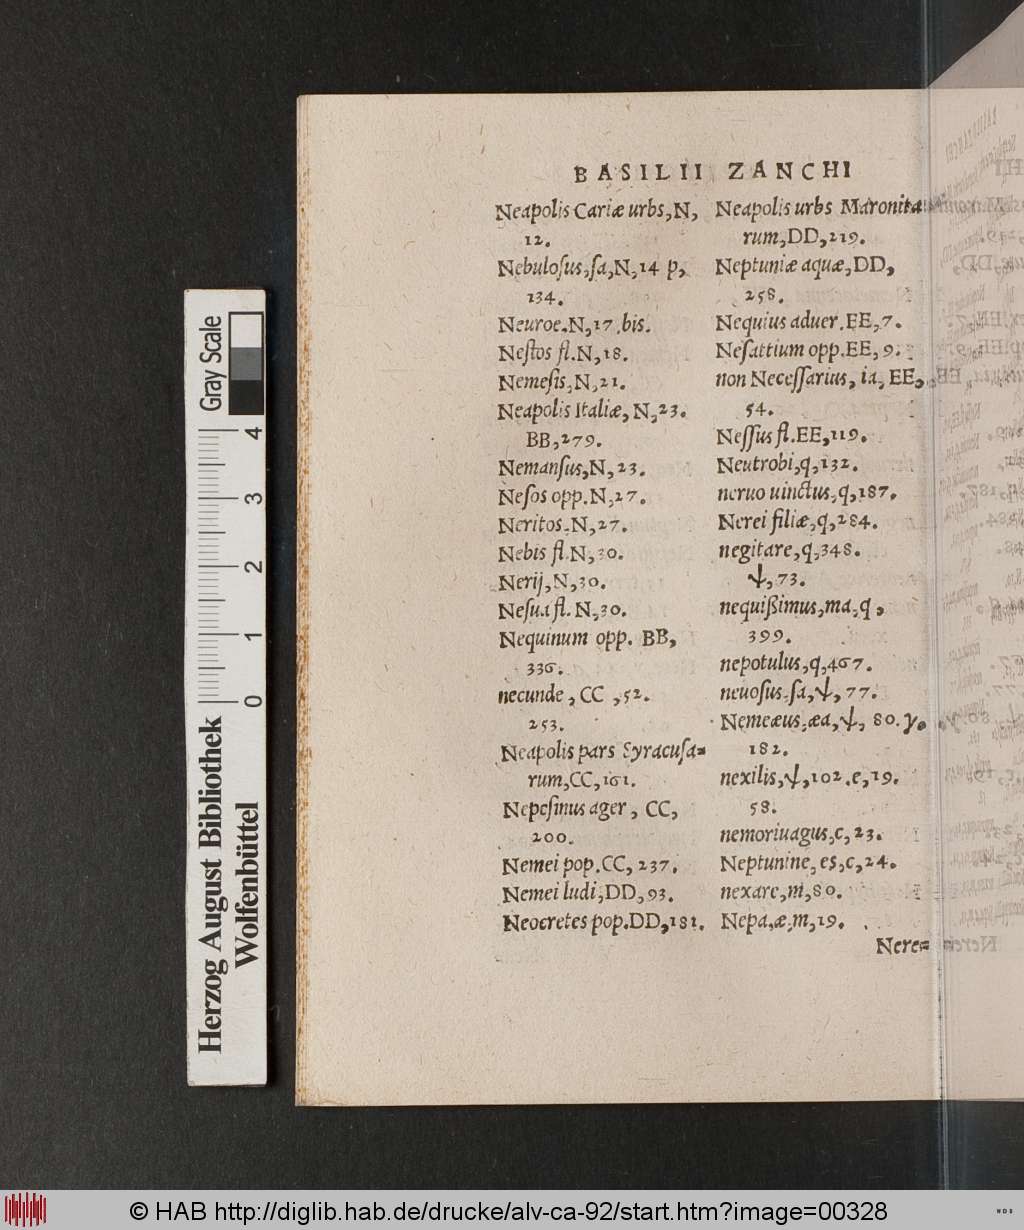 BASILII ZANCHI
Neapolis Cariæ urbs, N,
12.
Nebulosus, sa, N, 14 p,
134.
Neuroe. N, 17. bis.
Nestos fl. N, 18.
Nemesis, N, 21.
Neapolis Italiæ, N, 23.
BB, 279.
Nemansus, N, 23.
Nesos opp. N, 27.
Neritos. N, 27.
Nebis fl. N, 30.
Nerij, N, 30.
Nesua fl. N, 30.
Nequinum opp. BB,
336.
necunde, CC, 52.
253.
Neapolis pars Syracusa=
rum, CC, 161.
Nepesinus ager, CC,
200.
Nemei pop. CC, 237.
Nemei ludi, DD, 93.
Neocretes pop. DD, 181.
Neapolis urbs Maronita
rum, DD, 219.
Neptuniæ aquæ, DD,
258.
Nequius aduer. EE, 7.
Nesattium opp. EE, 9.
non Necessarius, ia, EE,
54.
Nessus fl. EE, 119.
Neutrobi, q, 132.
neruo uinctus, q, 187.
Nerei filiæ, q, 284.
negitare, q, 348.
ψ, 73.
nequißimus, ma, q,
399.
nepotulus, q, 467.
neuosus, sa, ψ, 77.
Nemeæus, æa, ψ, 80. y.
182.
nexilis, ψ, 102. e, 19.
58.
nemoriuagus, c, 23.
Neptunine, es, c, 24.
nexare, m, 80.
Nepa, æ, m, 19.
Nere=
Gray Scale
0 1 2 3 4
Herzog August Bibliothek
Wolfenbüttel
© HAB http://diglib.hab.de/drucke/alv-ca-92/start.htm?image=00328